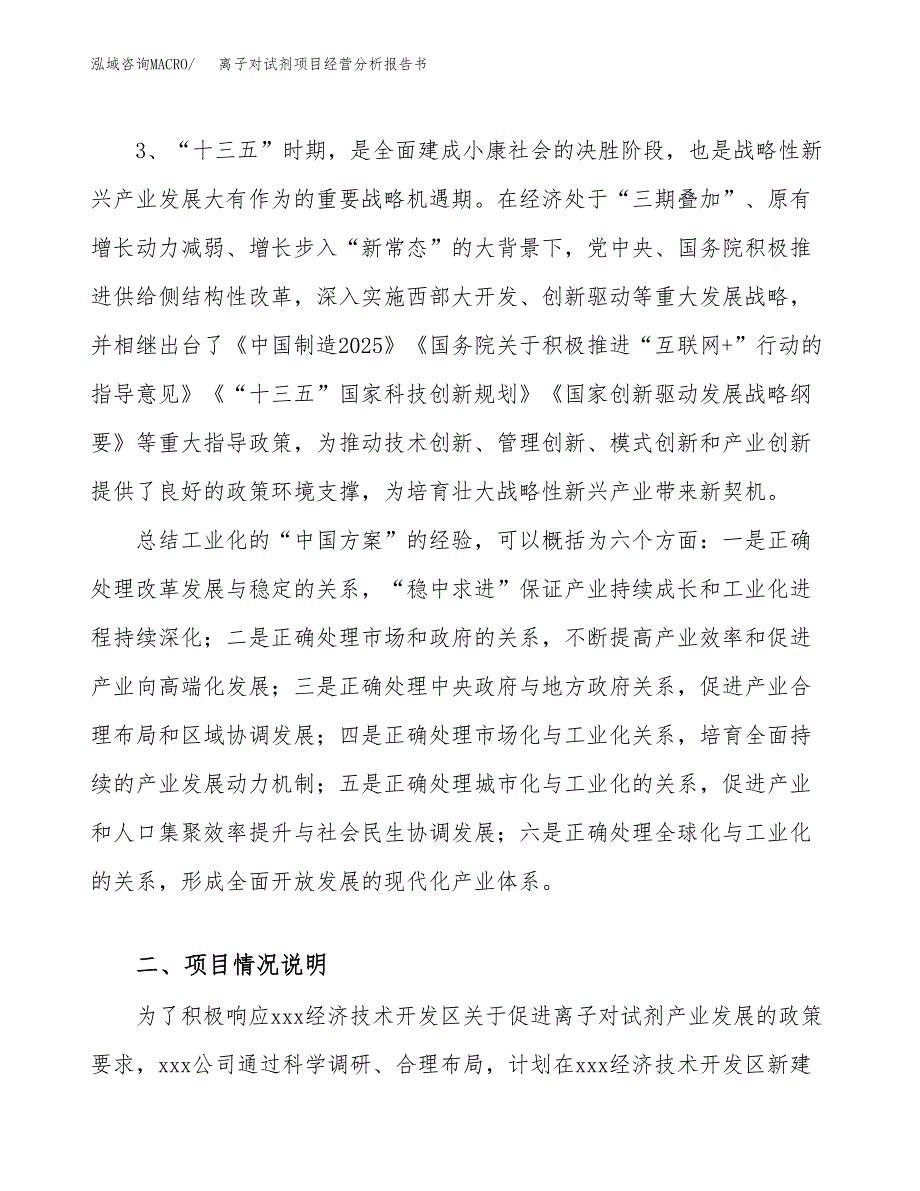 泓域咨询MACRO/ 离子对试剂项目经营分析报告书
3、“十三五”时期，是全面建成小康社会的决胜阶段，也是战略性新
兴产业发展大有作为的重要战略机遇期。在经济处于“三期叠加”、原有
增长动力减弱、增长步入“新常态”的大背景下，党中央、国务院积极推
进供给侧结构性改革，深入实施西部大开发、创新驱动等重大发展战略，
并相继出台了《中国制造2025》《国务院关于积极推进“互联网+”行动的
指导意见》《“十三五”国家科技创新规划》《国家创新驱动发展战略纲
要》等重大指导政策，为推动技术创新、管理创新、模式创新和产业创新
提供了良好的政策环境支撑，为培育壮大战略性新兴产业带来新契机。
总结工业化的“中国方案”的经验，可以概括为六个方面：一是正确
处理改革发展与稳定的关系，“稳中求进”保证产业持续成长和工业化进
程持续深化；二是正确处理市场和政府的关系，不断提高产业效率和促进
产业向高端化发展；三是正确处理中央政府与地方政府关系，促进产业合
理布局和区域协调发展；四是正确处理市场化与工业化关系，培育全面持
续的产业发展动力机制；五是正确处理城市化与工业化的关系，促进产业
和人口集聚效率提升与社会民生协调发展；六是正确处理全球化与工业化
的关系，形成全面开放发展的现代化产业体系。
二、项目情况说明
为了积极响应xxx经济技术开发区关于促进离子对试剂产业发展的政策
要求，xxx公司通过科学调研、合理布局，计划在xxx经济技术开发区新建